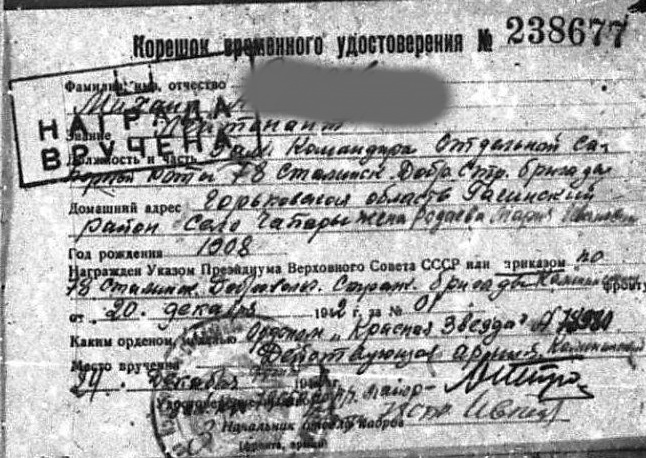 Корешок временного удостоверения № 238677
Фамилия, имя, отчество
НАГРАДА
ВРУЧЕНА
Звание Лейтенант
Должность и часть Зам. Командира Отдельной Са-
перной Роты 78 Сталинск. Добр. Стр. бригады
Домашний адрес Горьковская область Гагинский
район Село жена Мария
Год рождения 1908
Награжден Указом Президиума Верховного Совета СССР или приказом по
78 Сталинск. Доброволь. Стрелк. бригады фронту
от 20. декабря 1942 г. за № 01
Каким орденом, медалью Орденом „Красная Звезда"
Место вручения Действующая армия
24. декабря
Начальник отдела кадров
(фронта, армии)